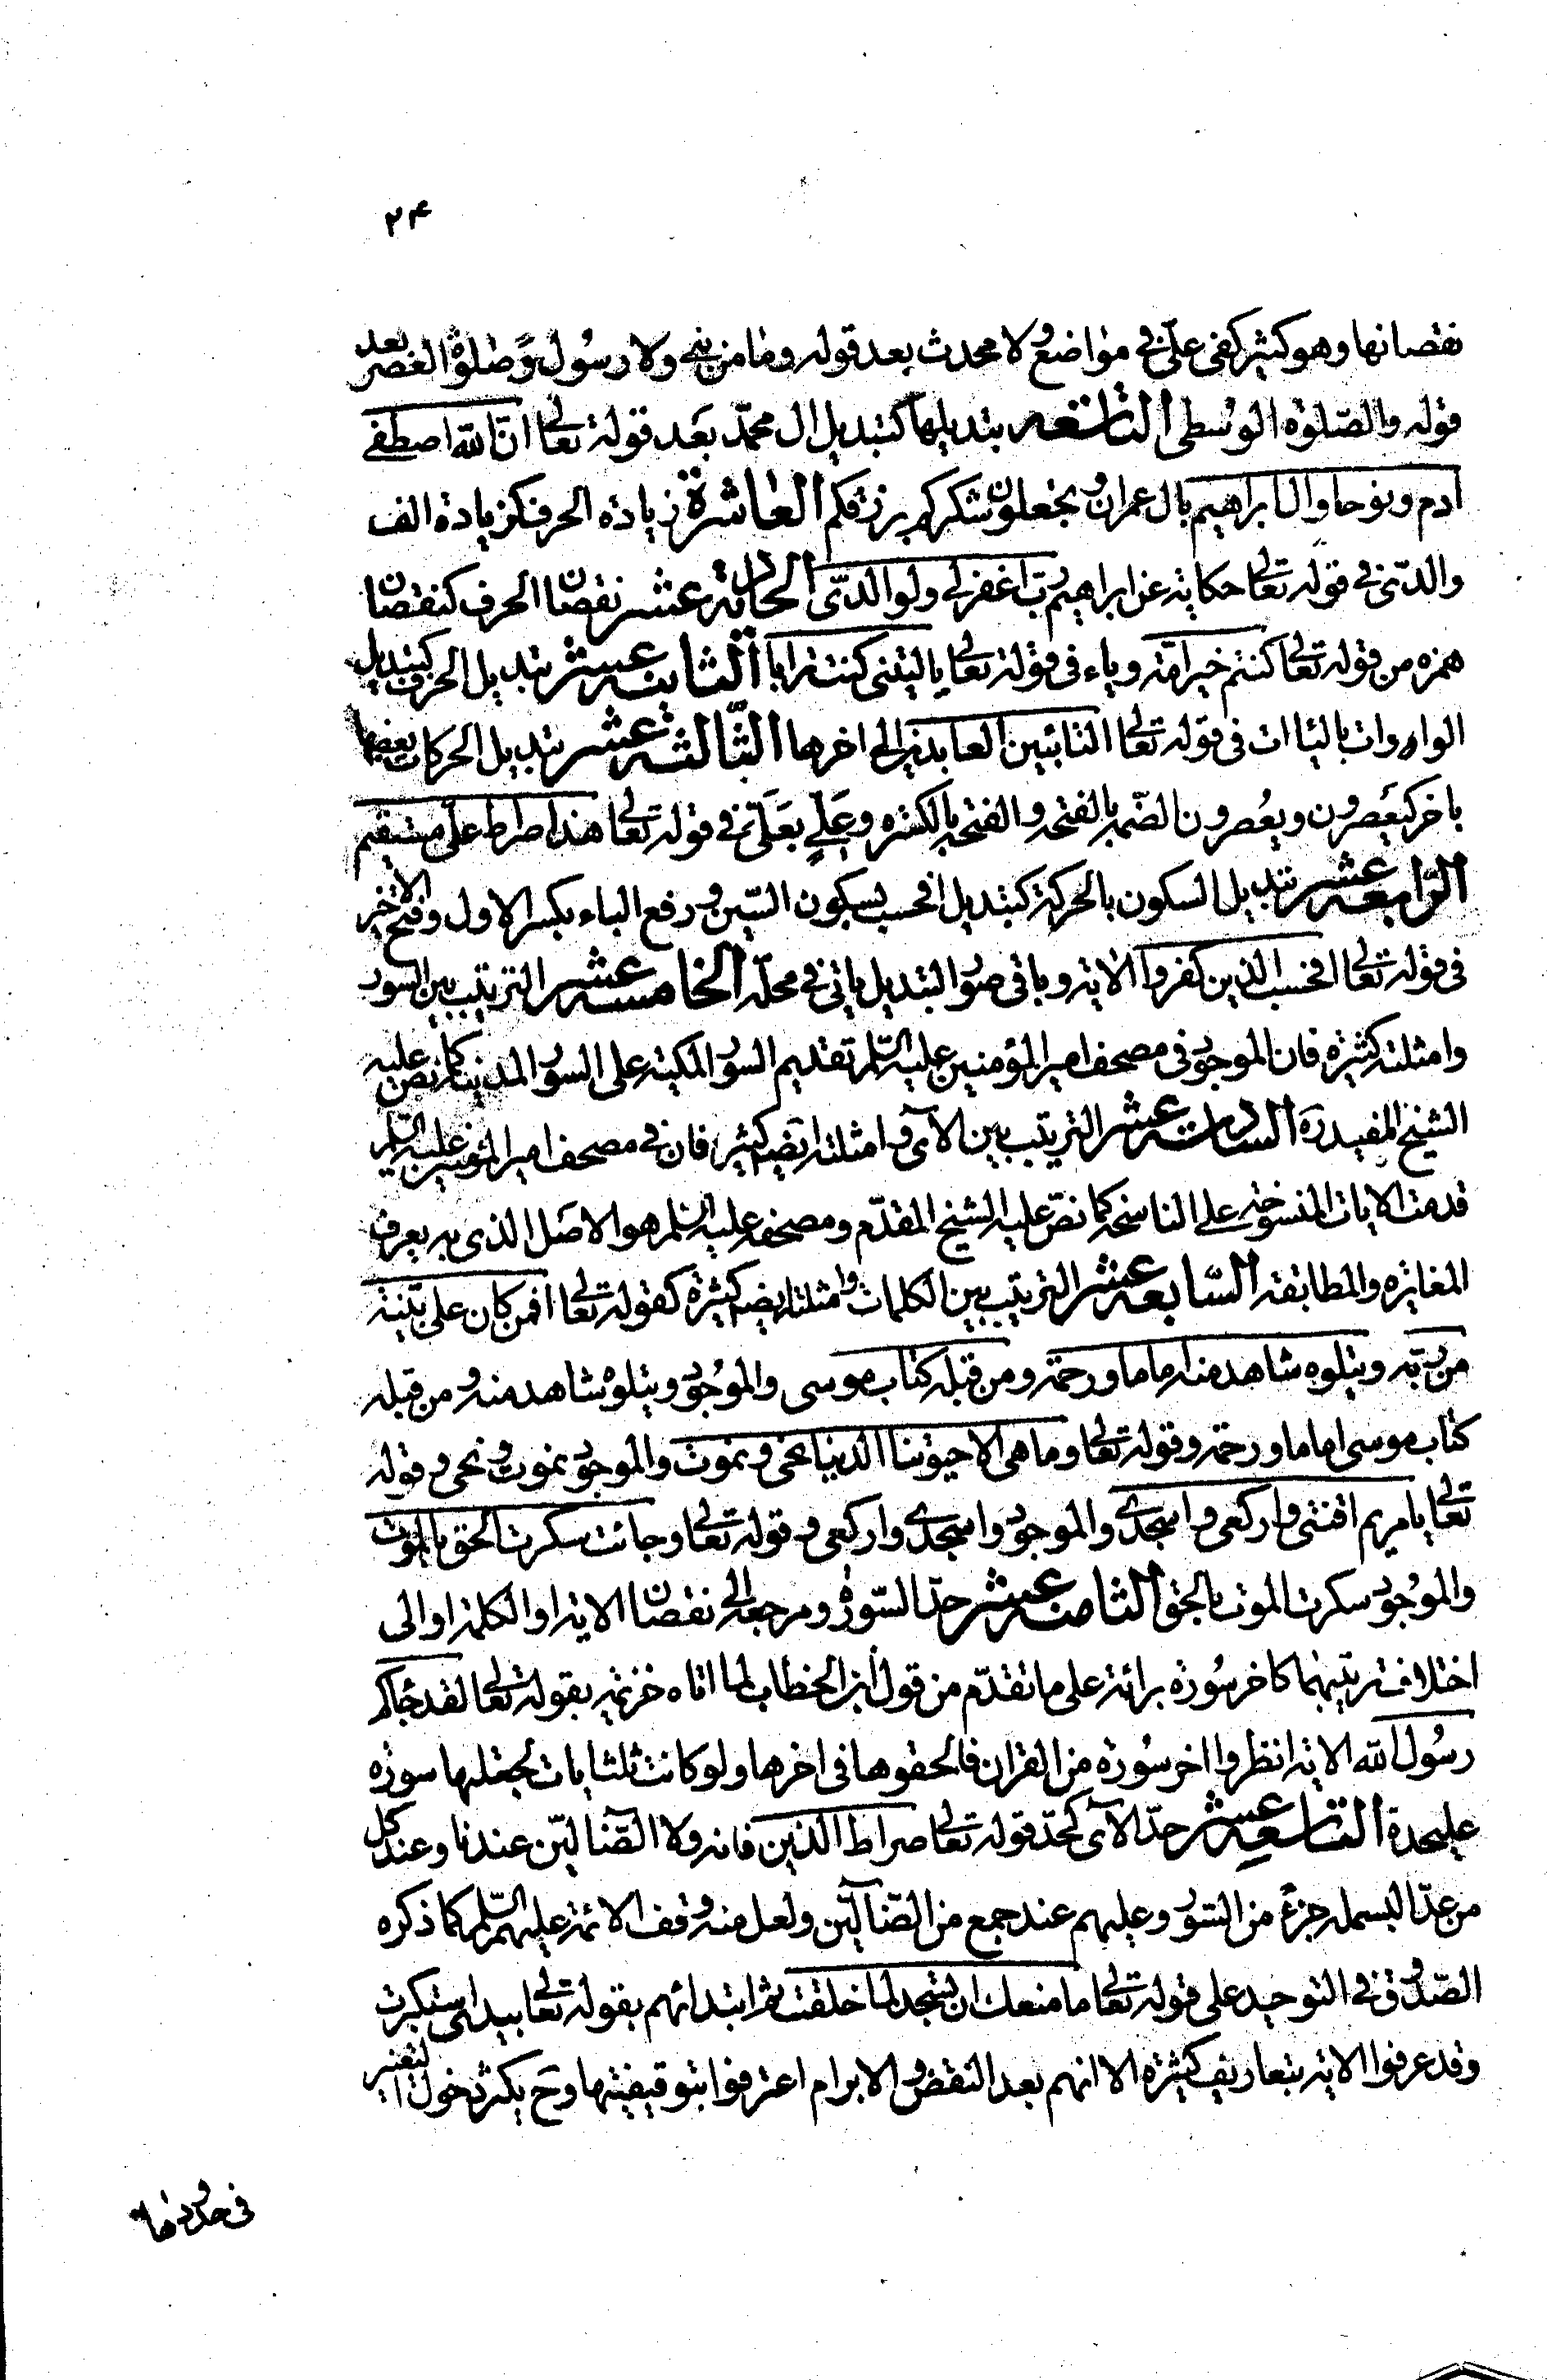 ۲۴
نقصانها وهو كثير كفى علي في مواضع ولا محدث بعد قوله وما من نبي ولا رسول وصلوة العصر بعد
قوله والصّلوة الوسطى التاسعه تبديلها كتبديل ال محمّد بعد قوله تعالى انّ الله اصطفى
ادم ونوحا وال ابراهيم بال عمران وتجعلون شكركم برزقكم العاشرة زيادة الحرف كزيادة الف
والدىّ في قوله تعالى حكاية عن ابراهيم رب اغفر لي ولوالدىّ الحادية عشر نقصان الحرف كنقصان
همزه من قوله تعالى كنتم خير امّة وياء في قوله تعالى يا ليتني كنت ترابا الثانية عشر تبديل الحرف كتبديل
الواوات بالياات في قوله تعالى التائبين العابدين الى اخرها الثّالثة عشر تبديل الحركات بعضها
باخر كيَعصرون ويُعصرون الضّمه بالفتحه والفتحه بالكسره وعَلَىَّ بعَلىّ في قوله تعالى هذا صراط علىّ مستقيم
الرّابعة عشر تبديل السكون بالحركة كتبديل افحسب بسكون السّين ورفع الباء بكسر الاول وفتح الاخير
في قوله تعالى افحسب الذين كفروا الاية وباقي صور التبديل ياتي في محلّه الخامسة عشر الترتيب بين السور
وامثلته كثيرة فان الموجود في مصحف امير المؤمنين عليه السّلم تقديم السور المكية على السور المدينة كما نص عليه
الشيخ المفيد ره السادسة عشر الترتيب بين الآى وامثلته ايضه كثير فان في مصحف امير المؤمنين عليه السّلم
قدمت الايات المنسوخة على الناسخه كما نصّ عليه الشيخ المقدّم ومصحفه عليه السّلم هو الاصل الذى به يعرف
المغايره والمطابقه السّابعة عشر الترتيب بين الكلمات وامثلته ايضه كثيرة كقوله تعالى افمن كان على بيّنة
من ربّه ويتلوه شاهد منه اماما ورحمة ومن قبله كتاب موسى والموجود ويتلوه شاهد منه ومن قبله
كتاب موسى اماما ورحمة وقوله تعالى وما هى الا حيوتنا الدنيا نحى ونموت والموجود نموت ونحى وقوله
تعالى يا مريم اقنتى واركعى واسجدى والموجود واسجدى واركعى وقوله تعالى وجائت سكرت الحق بالموت
والموجود سكرت الموت بالحق الثامنة عشر حدّ السّورة ومرجعه الى نقصان الاية او الكلمة او الى
اختلاف ترتيبهما كاخر سورة برائة على ما تقدّم من قول ابن الخطاب لما اتاه خزيمه بقوله تعالى لقد جاكم
رسول الله الاية انظروا اخر سورة من القران فالحقوها في اخرها ولو كانت ثلث ايات لجعلها سورة
عليحدة التاسعة عشر حدّ الآى كحدّ قوله تعالى صراط الذين فانه ولا الضّالّين عندنا وعند كل
من عدّ البسمله جزءً من السّور وعليهم عند جمع من الضّالّين ولعل منه وقف الائمة عليهم السّلم كما ذكره
الصّدوق في التوحيد على قوله تعالى ما منعك ان تسجد لما خلقت ثم ابتدائهم بقوله تعالى بيدى استكبرت
وقد عرفوا الاية بتعاريف كثيرة الا انهم بعد النقض والابرام اعترفوا بتوقيفيتها وح يكثر دخول التغيير
في حدودها